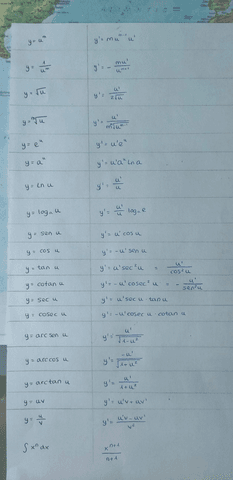 y = uᵐ y' = m uᵐ⁻¹ u'
y = 1/uᵐ y' = - mu'/uᵐ⁺¹
y = √u y' = u'/2√u
y = ᵐ√u y' = u'/m ᵐ√uᵐ⁻¹
y = eᵘ y' = u'eᵘ
y = aᵘ y' = u'aᵘ ln a
y = ln u y' = u'/u
y = logₐ u y' = u'/u logₐ e
y = sen u y' = u' cos u
y = cos u y' = -u' sen u
y = tan u y' = u' sec² u = u'/cos² u
y = cotan u y' = -u' cosec² u = - u'/sen² u
y = sec u y' = u' sec u · tan u
y = cosec u y' = -u' cosec u cotan u
y = arc sen u y' = u'/√1-u²
y = arc cos u y' = -u'/√1-u²
y = arc tan u y' = u'/1+u²
y = uv y' = u'v + uv'
y = u/v y' = u'v - uv'/v²
∫ xⁿ dx xⁿ⁺¹/n+1